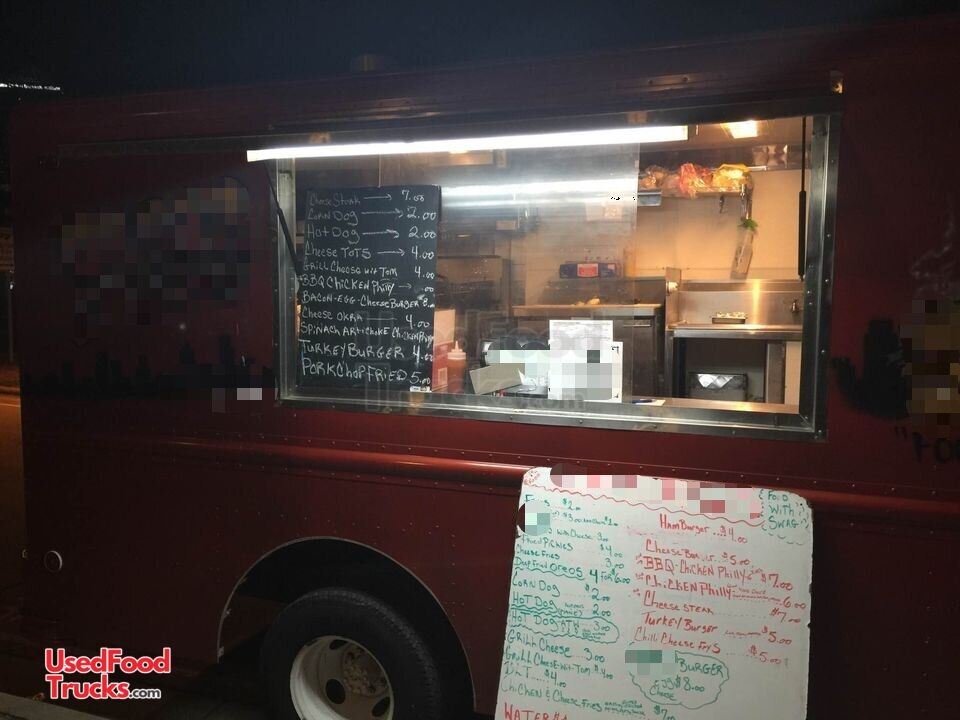 Cheese Steak → 7.00
Corn Dog → 2.00
Hot Dog → 2.00
Cheese Tots → 4.00
Grill Cheese wit Tom 4.00
BBQ Chicken Philly → .00
Bacon-Egg-CheeseBurger 8.
Cheese Okria 4.00
Spinach Artichoke Chicken
Turkey Burger 4.00
Pork Chop Fried 5.00
Food With Swag
$2.
$3.00
With Cheese 3.00
Fried Pickles $4.00
Cheese Fries 3.00
Deep Fried Oreos 4 for 6.00
Corn Dog $2.00
Hot Dog 2.00
Hot Dog ATW 3.00
Grill Cheese 3.00
Grill Cheese-wit-Tom $4.00
$4.00
Chicken & Cheese Fries $7.00
Water $1
HamBurger $4.00
Cheese $5.00
BBQ-Chicken Philly $7.00
Chicken Philly 6.00
Cheese Steak $7.00
Turkey Burger $5.00
Chili Cheese Frys $5.00
Burger
$8.00
UsedFood
Trucks.com